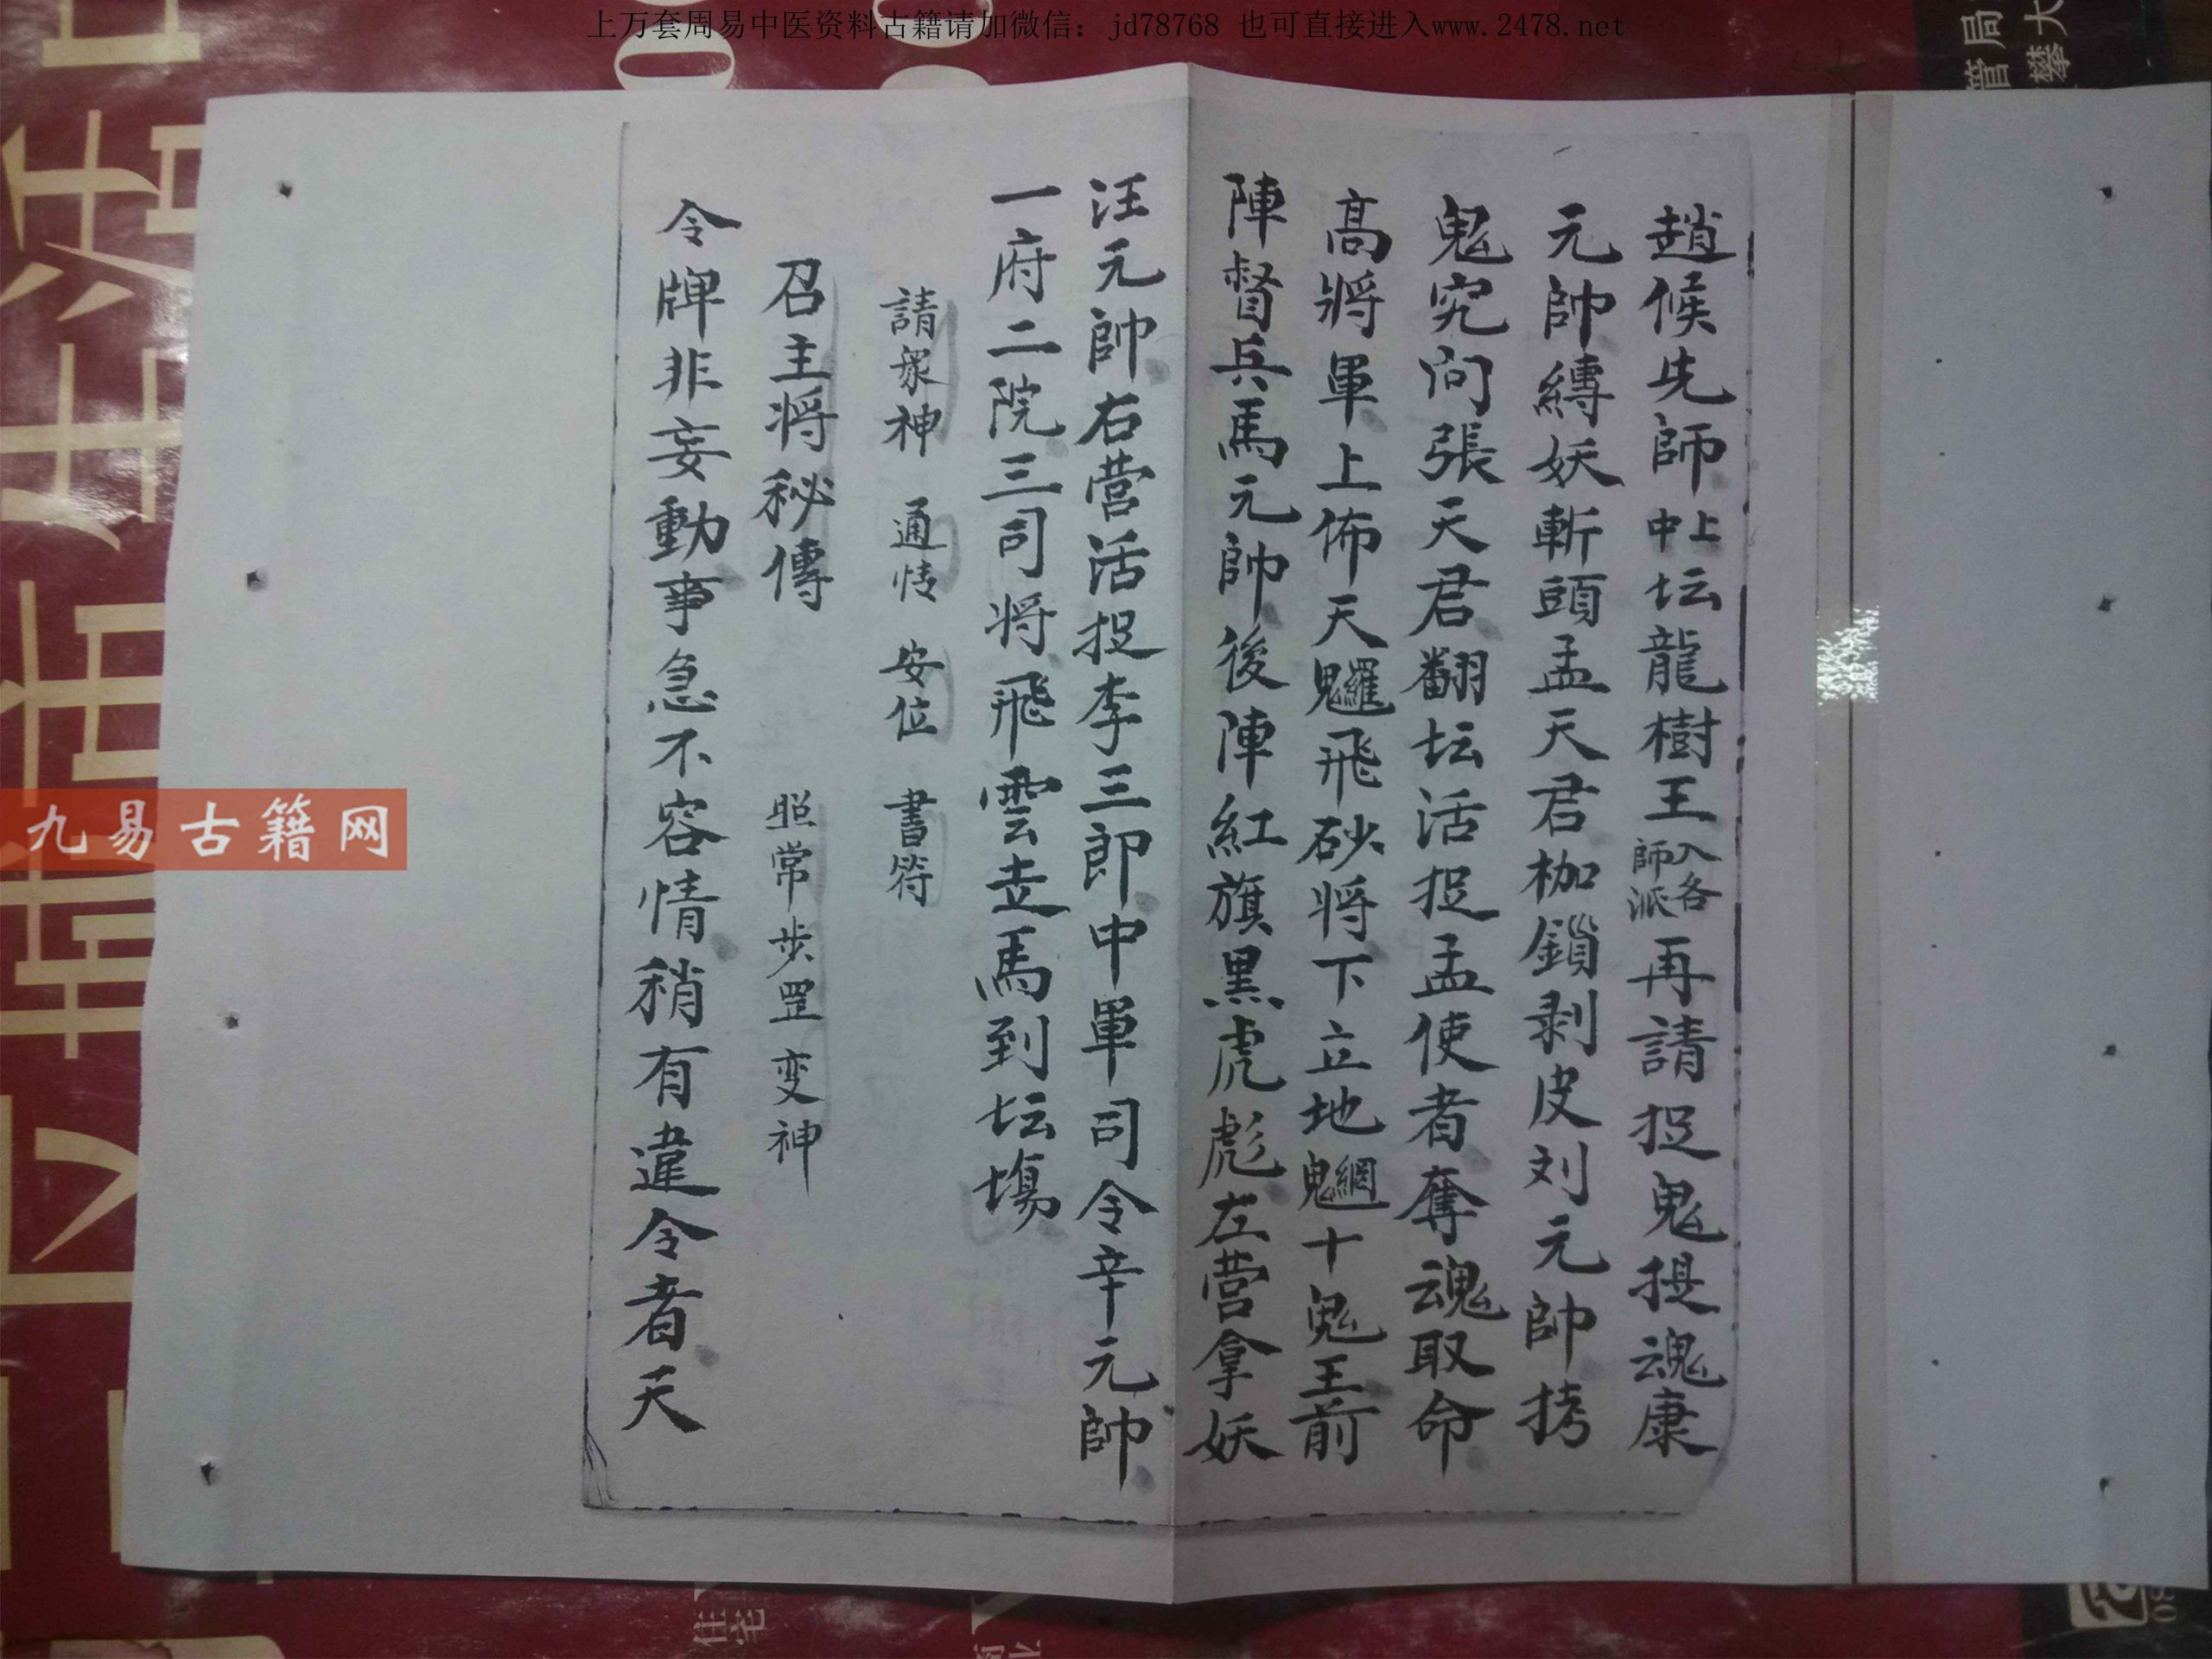 上万套周易中医资料古籍请加微信：jd78768 也可直接进入www.2478.net
趙候先師中上坛龍樹王入各師派再請捉鬼提魂康
元帥縛妖斬頭孟天君枷鎖剥皮刘元帥拷
鬼究问張天君翻坛活捉孟使者奪魂取命
高將軍上佈天魔飛砂将下立地魍十鬼王前
陣督兵馬元帥後陣紅旗黑虎彪左营拿妖
汪元帥右营活捉李三郎中軍司令辛元帥
一府二院三司将飛雲走馬到坛塲
請衆神 通情 安位 書符
召主将秘傳 照常步罡变神
令牌非妄動事急不容情稍有違令者天
九易古籍网
管局
攀大
住宅